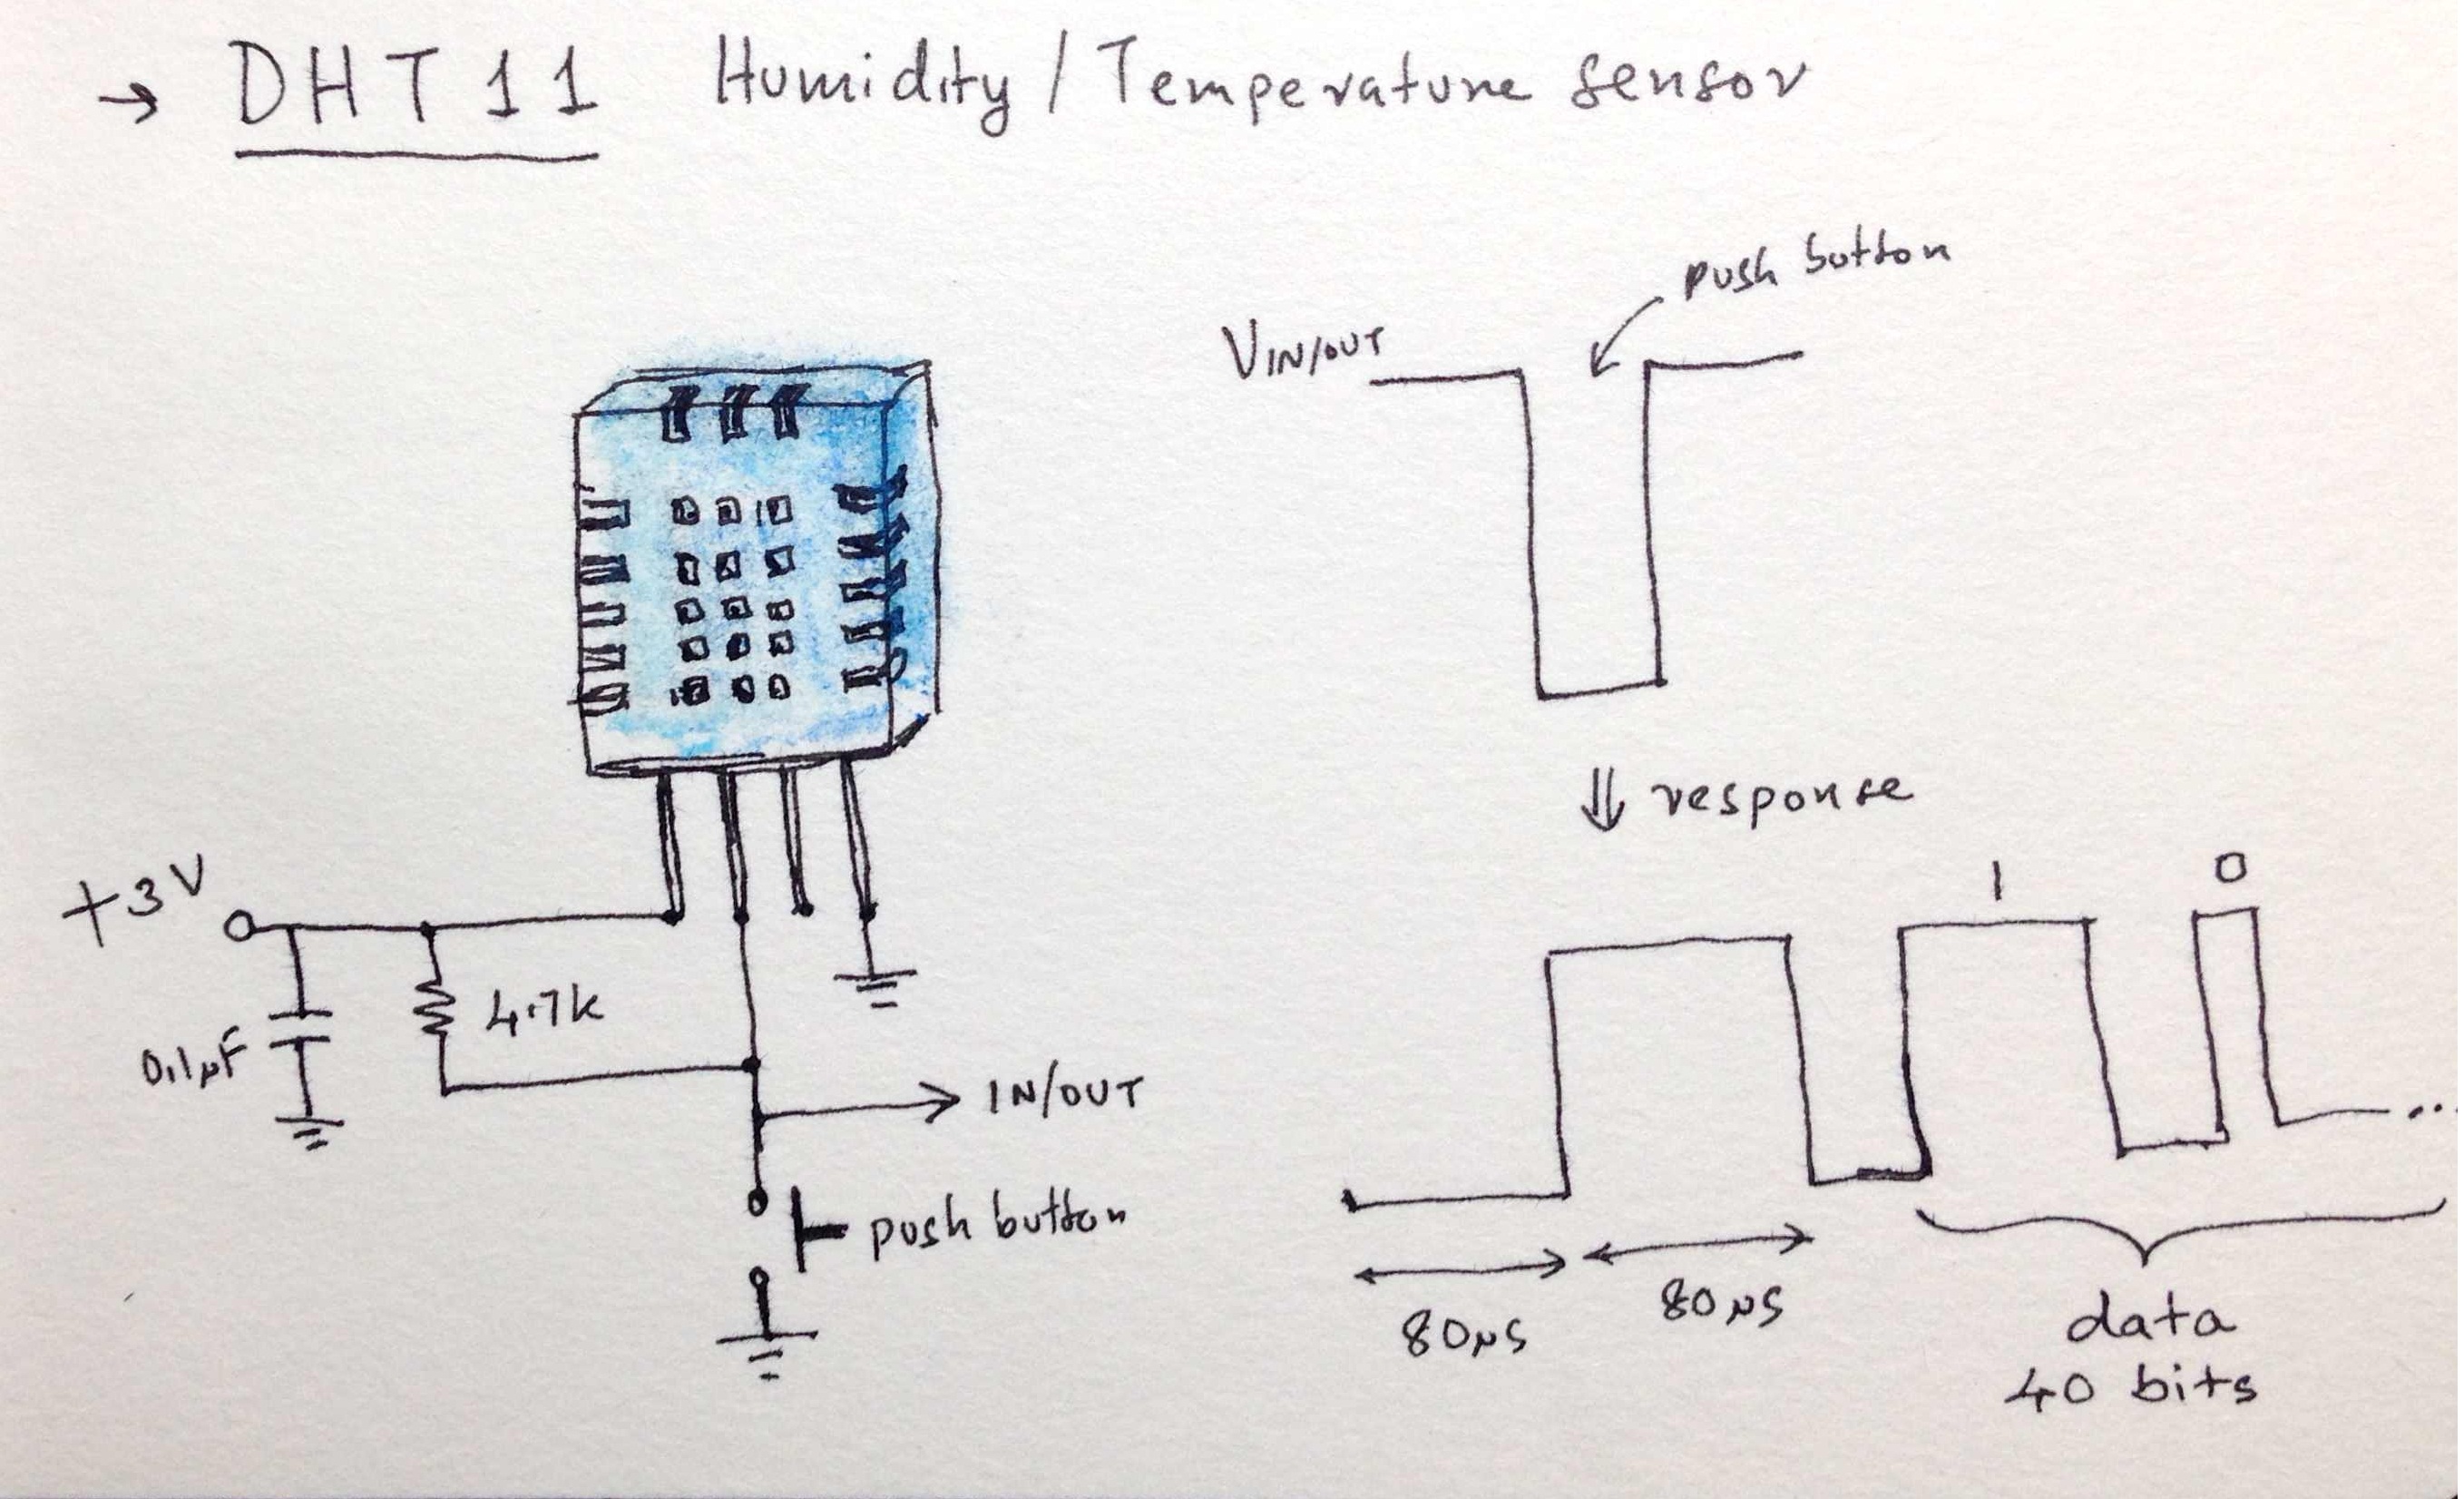 → DHT11 Humidity / Temperature sensor
push button
VIN/OUT
⇓ response
+3V
1
0
4.7k
0.1µF
IN/OUT
push button
80µs
80µs
data
40 bits